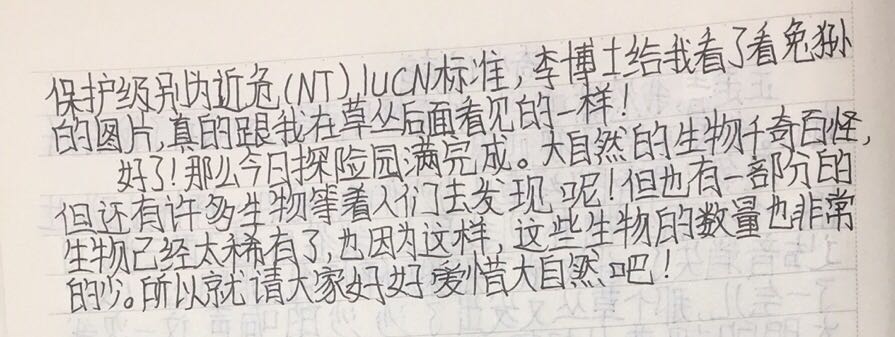 保护级别为近危(NT),IUCN标准,李博士给我看了看兔狲
的图片,真的跟我在草丛后面看见的一样!
好了!那么今日探险园满完成。大自然的生物千奇百怪,
但还有许多生物等着人们去发现呢!但也有一部分的
生物已经太稀有了,也因为这样,这些生物的数量也非常
的少。所以就请大家好好爱惜大自然吧!